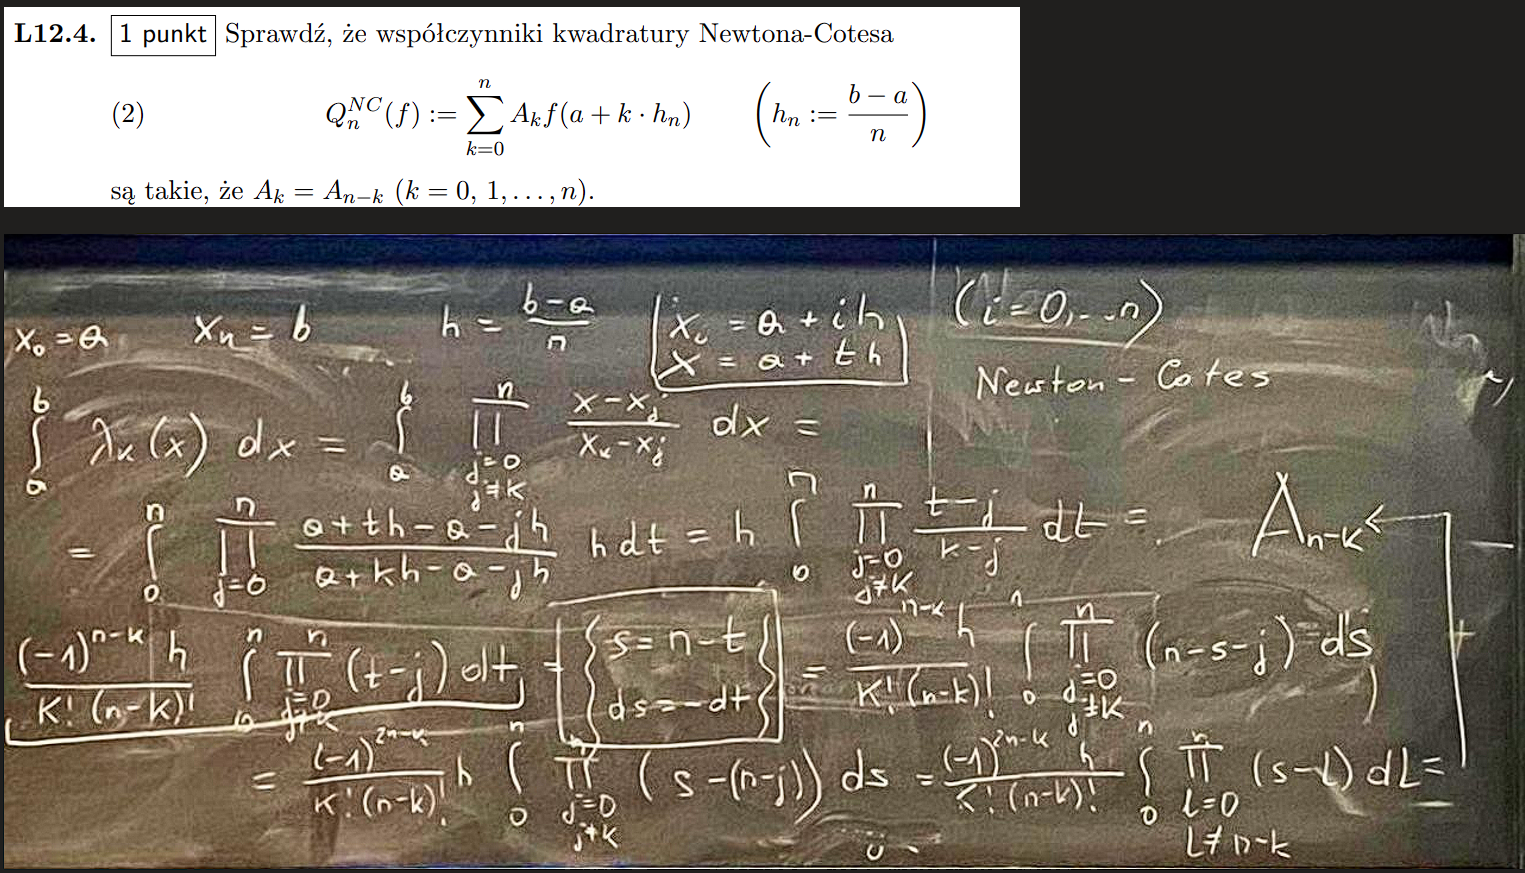 L12.4. 1 punkt Sprawdź, że współczynniki kwadratury Newtona-Cotesa
(2) Q_n^{NC}(f) := \sum_{k=0}^{n} A_k f(a + k · h_n) (h_n := \frac{b − a}{n})
są takie, że A_k = A_{n−k} (k = 0, 1, . . . , n).
x_0 = a x_n = b h = \frac{b-a}{n} x_i = a + ih (i = 0, ... n)
x = a + th
Newton - Cotes
\int_a^b λ_k(x) dx = \int_a^b \prod_{j=0, j≠k}^{n} \frac{x - x_j}{x_k - x_j} dx =
= \int_0^n \prod_{j=0}^{n} \frac{a + th - a - jh}{a + kh - a - jh} h dt = h \int_0^n \prod_{j=0, j≠k}^{n} \frac{t - j}{k - j} dt = A_{n-k}
\frac{(-1)^{n-k} h}{k! (n-k)!} \int_0^n \prod_{j=0, j≠k}^{n} (t - j) dt = { s = n - t ds = -dt } = \frac{(-1)^{n-k} h}{k! (n-k)!} \int_0^n \prod_{j=0, j≠k}^{n} (n - s - j) ds
= \frac{(-1)^{2n-k}}{k! (n-k)!} h \int_0^n \prod_{j=0, j≠k}^{n} (s - (n-j)) ds = \frac{(-1)^{2n-k} h}{k! (n-k)!} \int_0^n \prod_{l=0, l≠n-k}^{n} (s - l) dl =